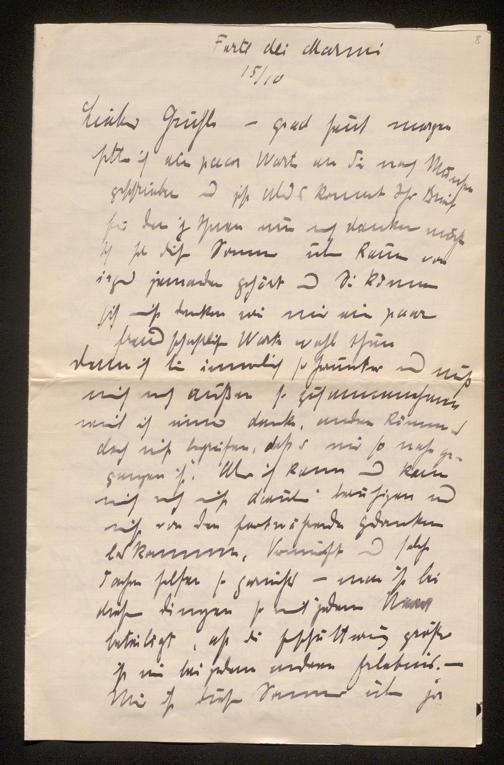 Forte dei Marmi
15/10
Lieber – grad heut morgen
ein paar Worte an Sie nach München
geschrieben und kommt Ihr Brief
für den ich Ihnen nur noch danken möchte
Ich habe diesen Sommer über kaum von
irgend jemanden gehört und Sie können
sich denken wie mir ein paar
freundschaftliche Worte wohl thun
denn ich bin innerlich so und muß
mich nach außen so zusammennehmen
weil ich immer denke, andere können es
doch nicht begreifen, daß es mir so nah ge-
gangen ist. Aber ich kann und kann
mich noch nicht darüber beruhigen und
nicht von den Gedanken
loskommen, Vernunft und
Sachen helfen so garnichts – man ist bei
diesen Dingen so mit jedem Nerv
beteiligt, daß die Erschütterung größer
ist wie bei jedem anderen Erlebnis. –
Mir ist diesen Sommer über ja